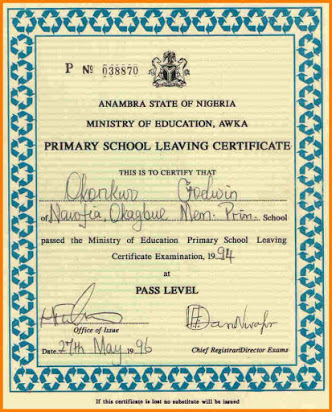 P Nº 038870
ANAMBRA STATE OF NIGERIA
MINISTRY OF EDUCATION, AWKA
PRIMARY SCHOOL LEAVING CERTIFICATE
THIS IS TO CERTIFY THAT
Okonkwo Godwin
of Nawfia, Okagbue Mem. Prim. School
passed the Ministry of Education Primary School Leaving
Certificate Examination, 1994
at
PASS LEVEL
Office of Issue
Date 27th May 1996 Chief Registrar/Director Exams
If this certificate is lost no substitute will be issued